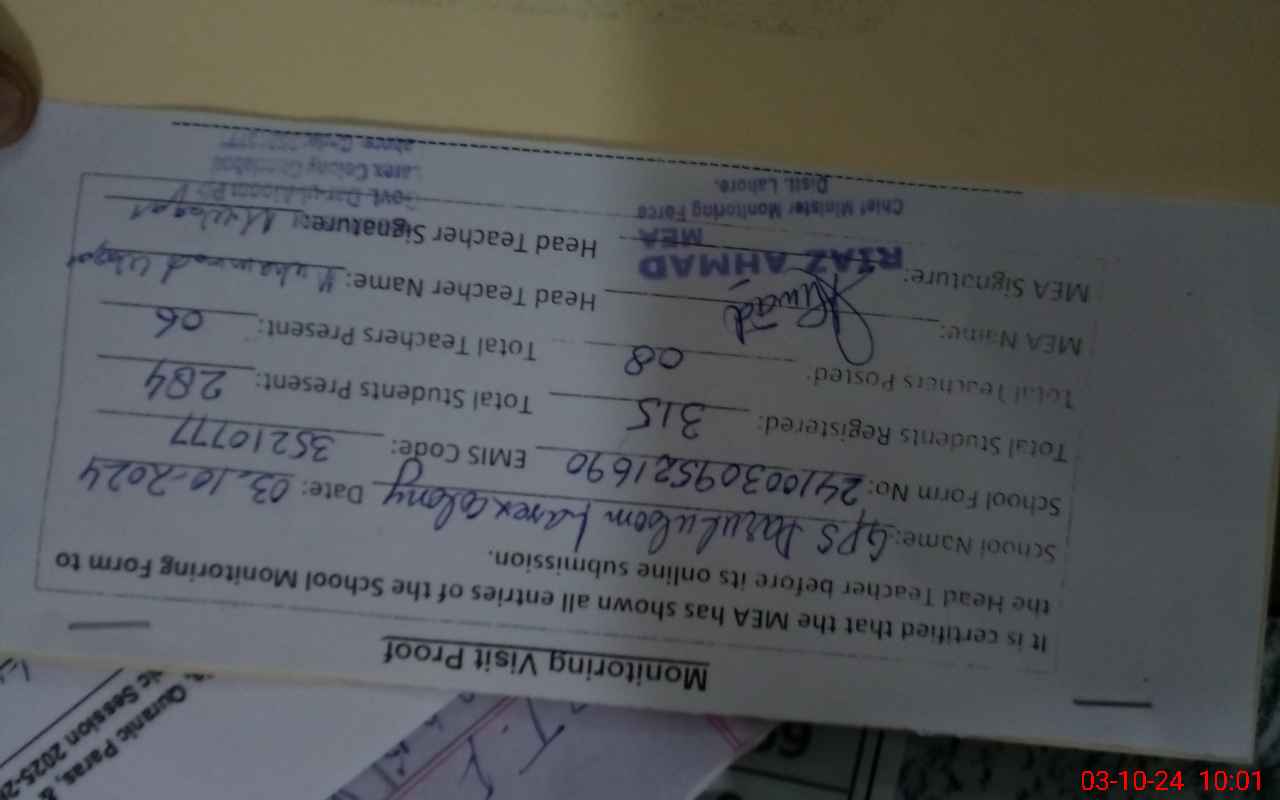 Monitoring Visit Proof
It is certified that the MEA has shown all entries of the School Monitoring Form to
the Head Teacher before its online submission.
School Name: GPS Darululoom Larex Colony Date: 03-10-2024
School Form No: 24100309521690 EMIS Code: 35210777
Total Students Registered: 315 Total Students Present: 284
Total Teachers Posted: 08 Total Teachers Present: 06
MEA Name: Head Teacher Name: Muhammad Waqar
MEA Signature: Head Teacher Signature: M. Waqar
RIAZ AHMAD
MEA
Chief Minister Monitoring Force
Distt. Lahore.
Govt. Darul Uloom
Larex Colony
Quranic Paras,
ic Session 2025-2
03-10-24 10:01